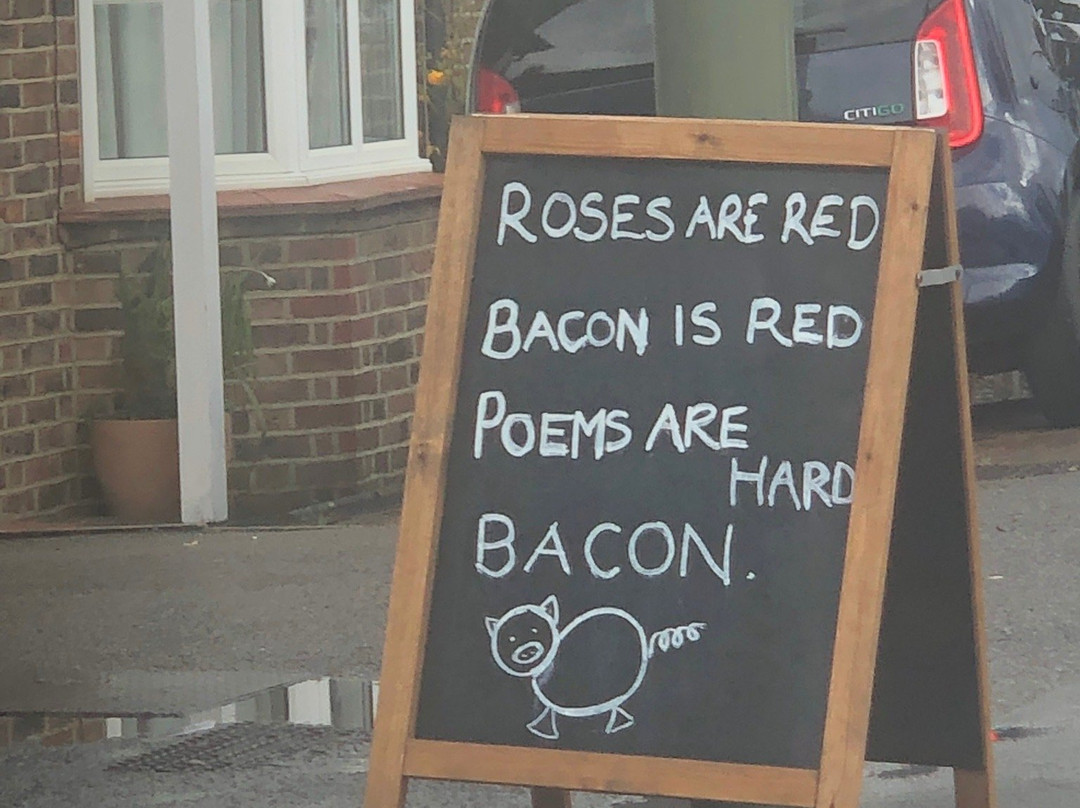 CITIGO
ROSES ARE RED
BACON IS RED
POEMS ARE
HARD
BACON.